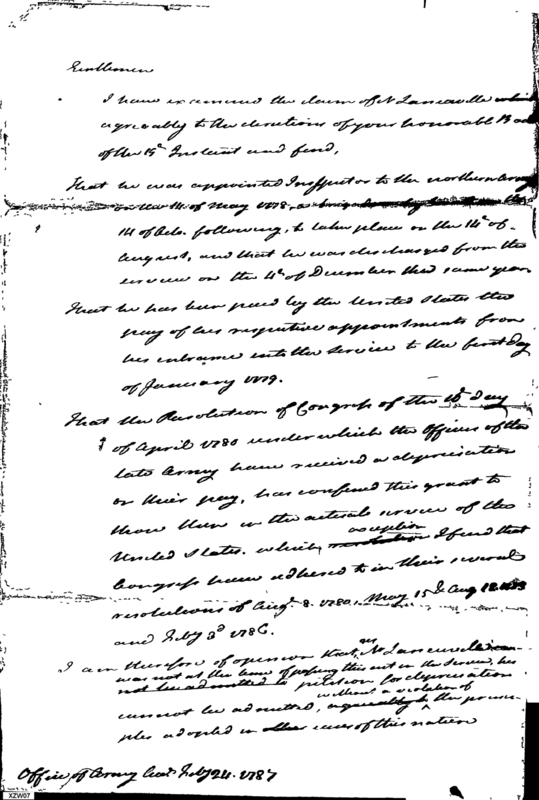 Gentlemen
I have examined the claim of N Lanceville which
agreeably to the directions of your honorable Board
of the 15th Instant and find,
That he was appointed Inspector to the northern Army
on the 14 of May 1778, a by the
14 of Octo. following, to take place on the 14th of
August, and that he was discharged from the
service on the 4th of December the same year
That he has been paid by the United States the
pay of his respective appointments from
his entrance into the service to the first day
of January 1779.
That the Resolution of Congress of the 10th Day
of April 1780 under which the Officers of the
late Army have received a depreciation
on their pay, has confined this grant to
those then in the actual service of the
exception
United States. which, I find that
Congress have adhered to in their several
resolutions of Augt. 8. 1780. May 15th Aug
and Feby 3d 1786.
I am therefore of opinion that, as Mr Lanceville
was not at the time of passing this act in the Service, his
not be admitted to petition for depreciation
without a violation of
cannot be admitted, agreeably to the princi-
ples adopted in other cases of this nature
Office of Army Acct. Feby 24. 1787
XZW07